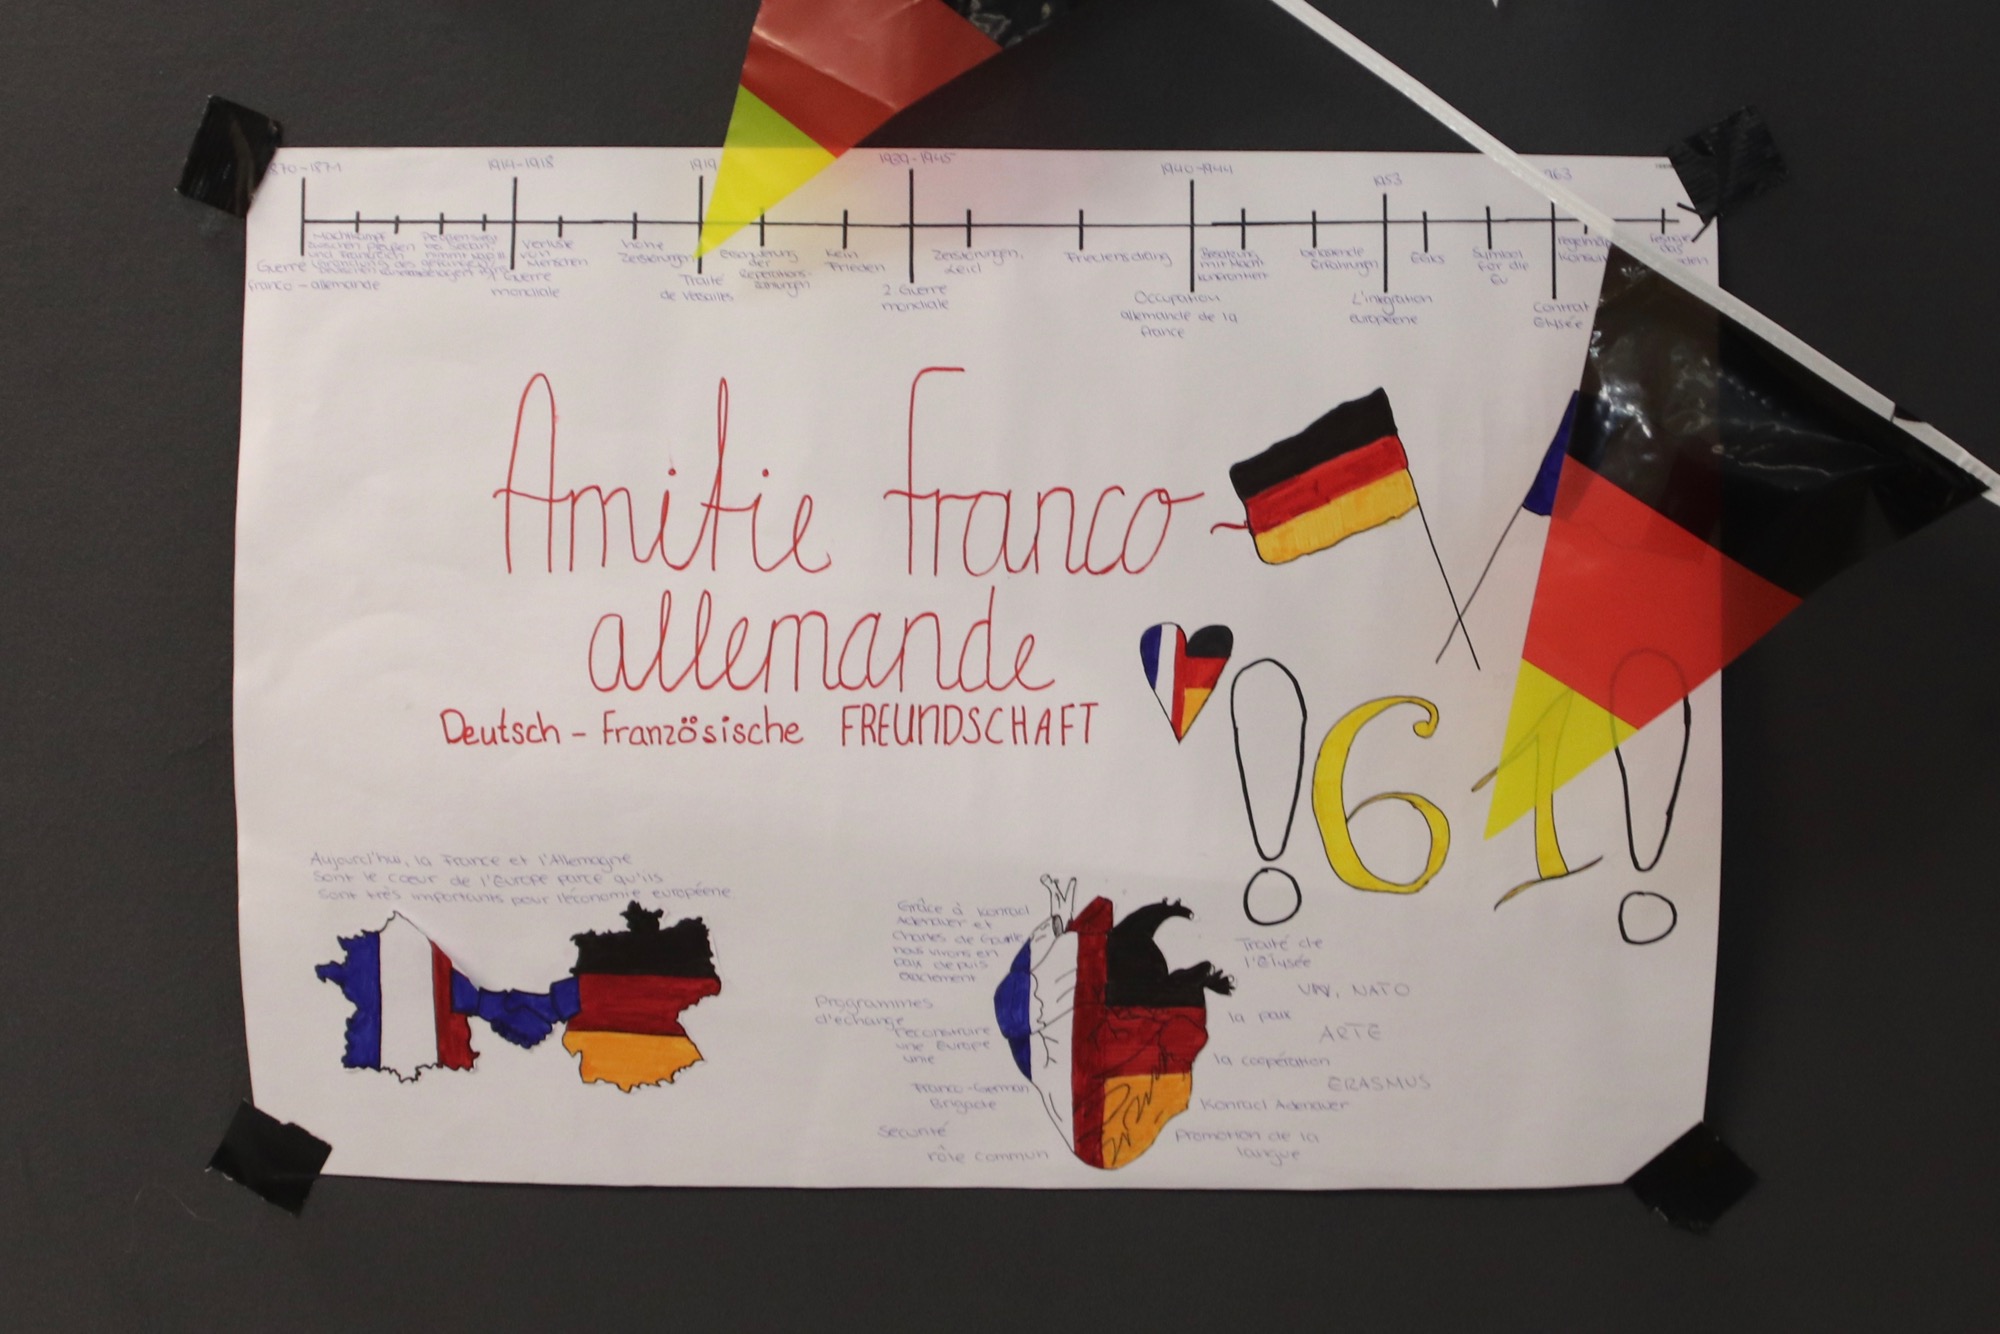 1914-1918
1919
1939-1945
1940-1944
1953
Machtkampf
zwischen Preußen
und Frankreich
Verluste
von
Menschen
hohe
Zerstörungen
kein
Frieden
Zerstörungen,
Leid
Friedensdrang
belastende
Erfahrungen
EGKS
Symbol
für die
EU
Guerre
franco-allemande
Guerre
mondiale
Traité
de Versailles
2. Guerre
mondiale
Occupation
allemande de la
France
L'intégration
européene
Contrat
Elysée
Amitie franco-
allemande
Deutsch - Französische FREUNDSCHAFT
! 61 !
Aujourd'hui, la France et l'Allemagne
sont le cœur de l'Europe parce qu'ils
sont très importants pour l'économie européene
Grâce à Konrad
Adenauer et
Charles de Gaulle
nous vivons en
paix depuis
Programmes
d'échange
reconstruire
une Europe
unie
Franco-German
Brigade
Securité
rôle commun
Traité de
l'Elysée
NATO
la paix
ARTE
la coopération
ERASMUS
Konrad Adenauer
Promotion de la
langue